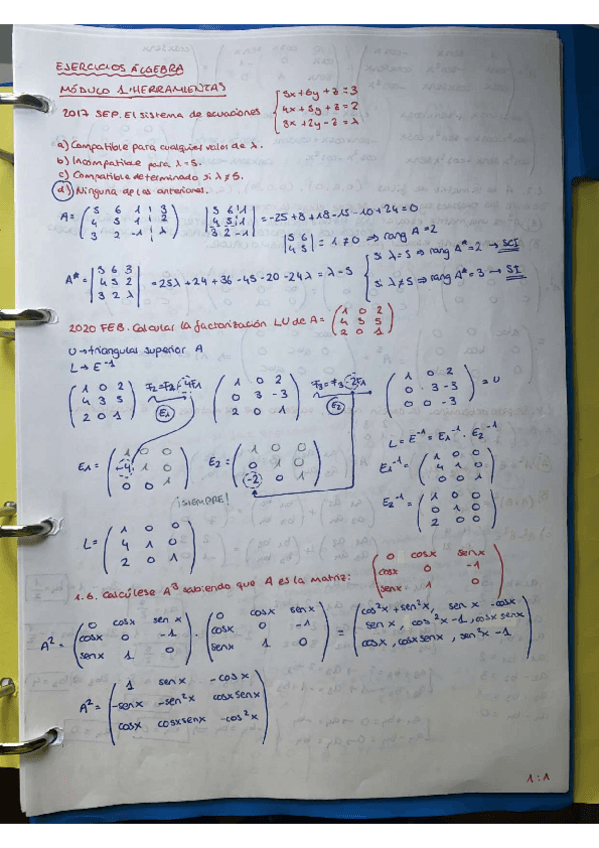 EJERCICIOS ÁLGEBRA
MÓDULO 1: HERRAMIENTAS
2017 SEP. El sistema de ecuaciones { 5x+6y+z=3
4x+5y+z=2
3x+2y-z=λ
a) Compatible para cualquier valor de λ.
b) Incompatible para λ=5.
c) Compatible determinado si λ≠5.
d) Ninguna de las anteriores.
A = ( 5 6 1 | 3
4 5 1 | 2
3 2 -1 | λ )
| 5 6 1 |
| 4 5 1 |
| 3 2 -1 | = -25+8+18-15-10+24=0
| 5 6 |
| 4 5 | = 1 ≠ 0 ⇒ rang A = 2
A* = | 5 6 3 |
| 4 5 2 |
| 3 2 λ | = 25λ+24+36-45-20-24λ = λ-5
{ si λ=5 ⇒ rang A*=2 → SCI
si λ≠5 ⇒ rang A*=3 → SI
2020 FEB. Calcular la factorización LU de A = ( 1 0 2
4 3 5
2 0 1 )
U → triangular superior A
L → E⁻¹
( 1 0 2
4 3 5
2 0 1 )
F2=F2-4F1
E1
( 1 0 2
0 3 -3
2 0 1 )
F3=F3-2F1
E2
( 1 0 2
0 3 -3
0 0 -3 ) = U
L = E⁻¹ = E1⁻¹ · E2⁻¹
E1 = ( 1 0 0
-4 1 0
0 0 1 )
E2 = ( 1 0 0
0 1 0
-2 0 1 )
¡SIEMPRE!
E1⁻¹ = ( 1 0 0
4 1 0
0 0 1 )
E2⁻¹ = ( 1 0 0
0 1 0
2 0 0 )
L = ( 1 0 0
4 1 0
2 0 1 )
1.6. Calcúlese A³ sabiendo que A es la matriz: ( 0 cosx senx
cosx 0 -1
senx 1 0 )
A² = ( 0 cosx sen x
cosx 0 -1
senx 1 0 ) · ( 0 cosx senx
cosx 0 -1
senx 1 0 ) = ( cos²x + sen²x, sen x -cosx
senx, cos²x-1, cosx senx
cosx, cosx senx, sen²x-1 )
A² = ( 1 sen x -cosx
-senx -sen²x cosx senx
cosx cosx senx -cos²x )
1:1